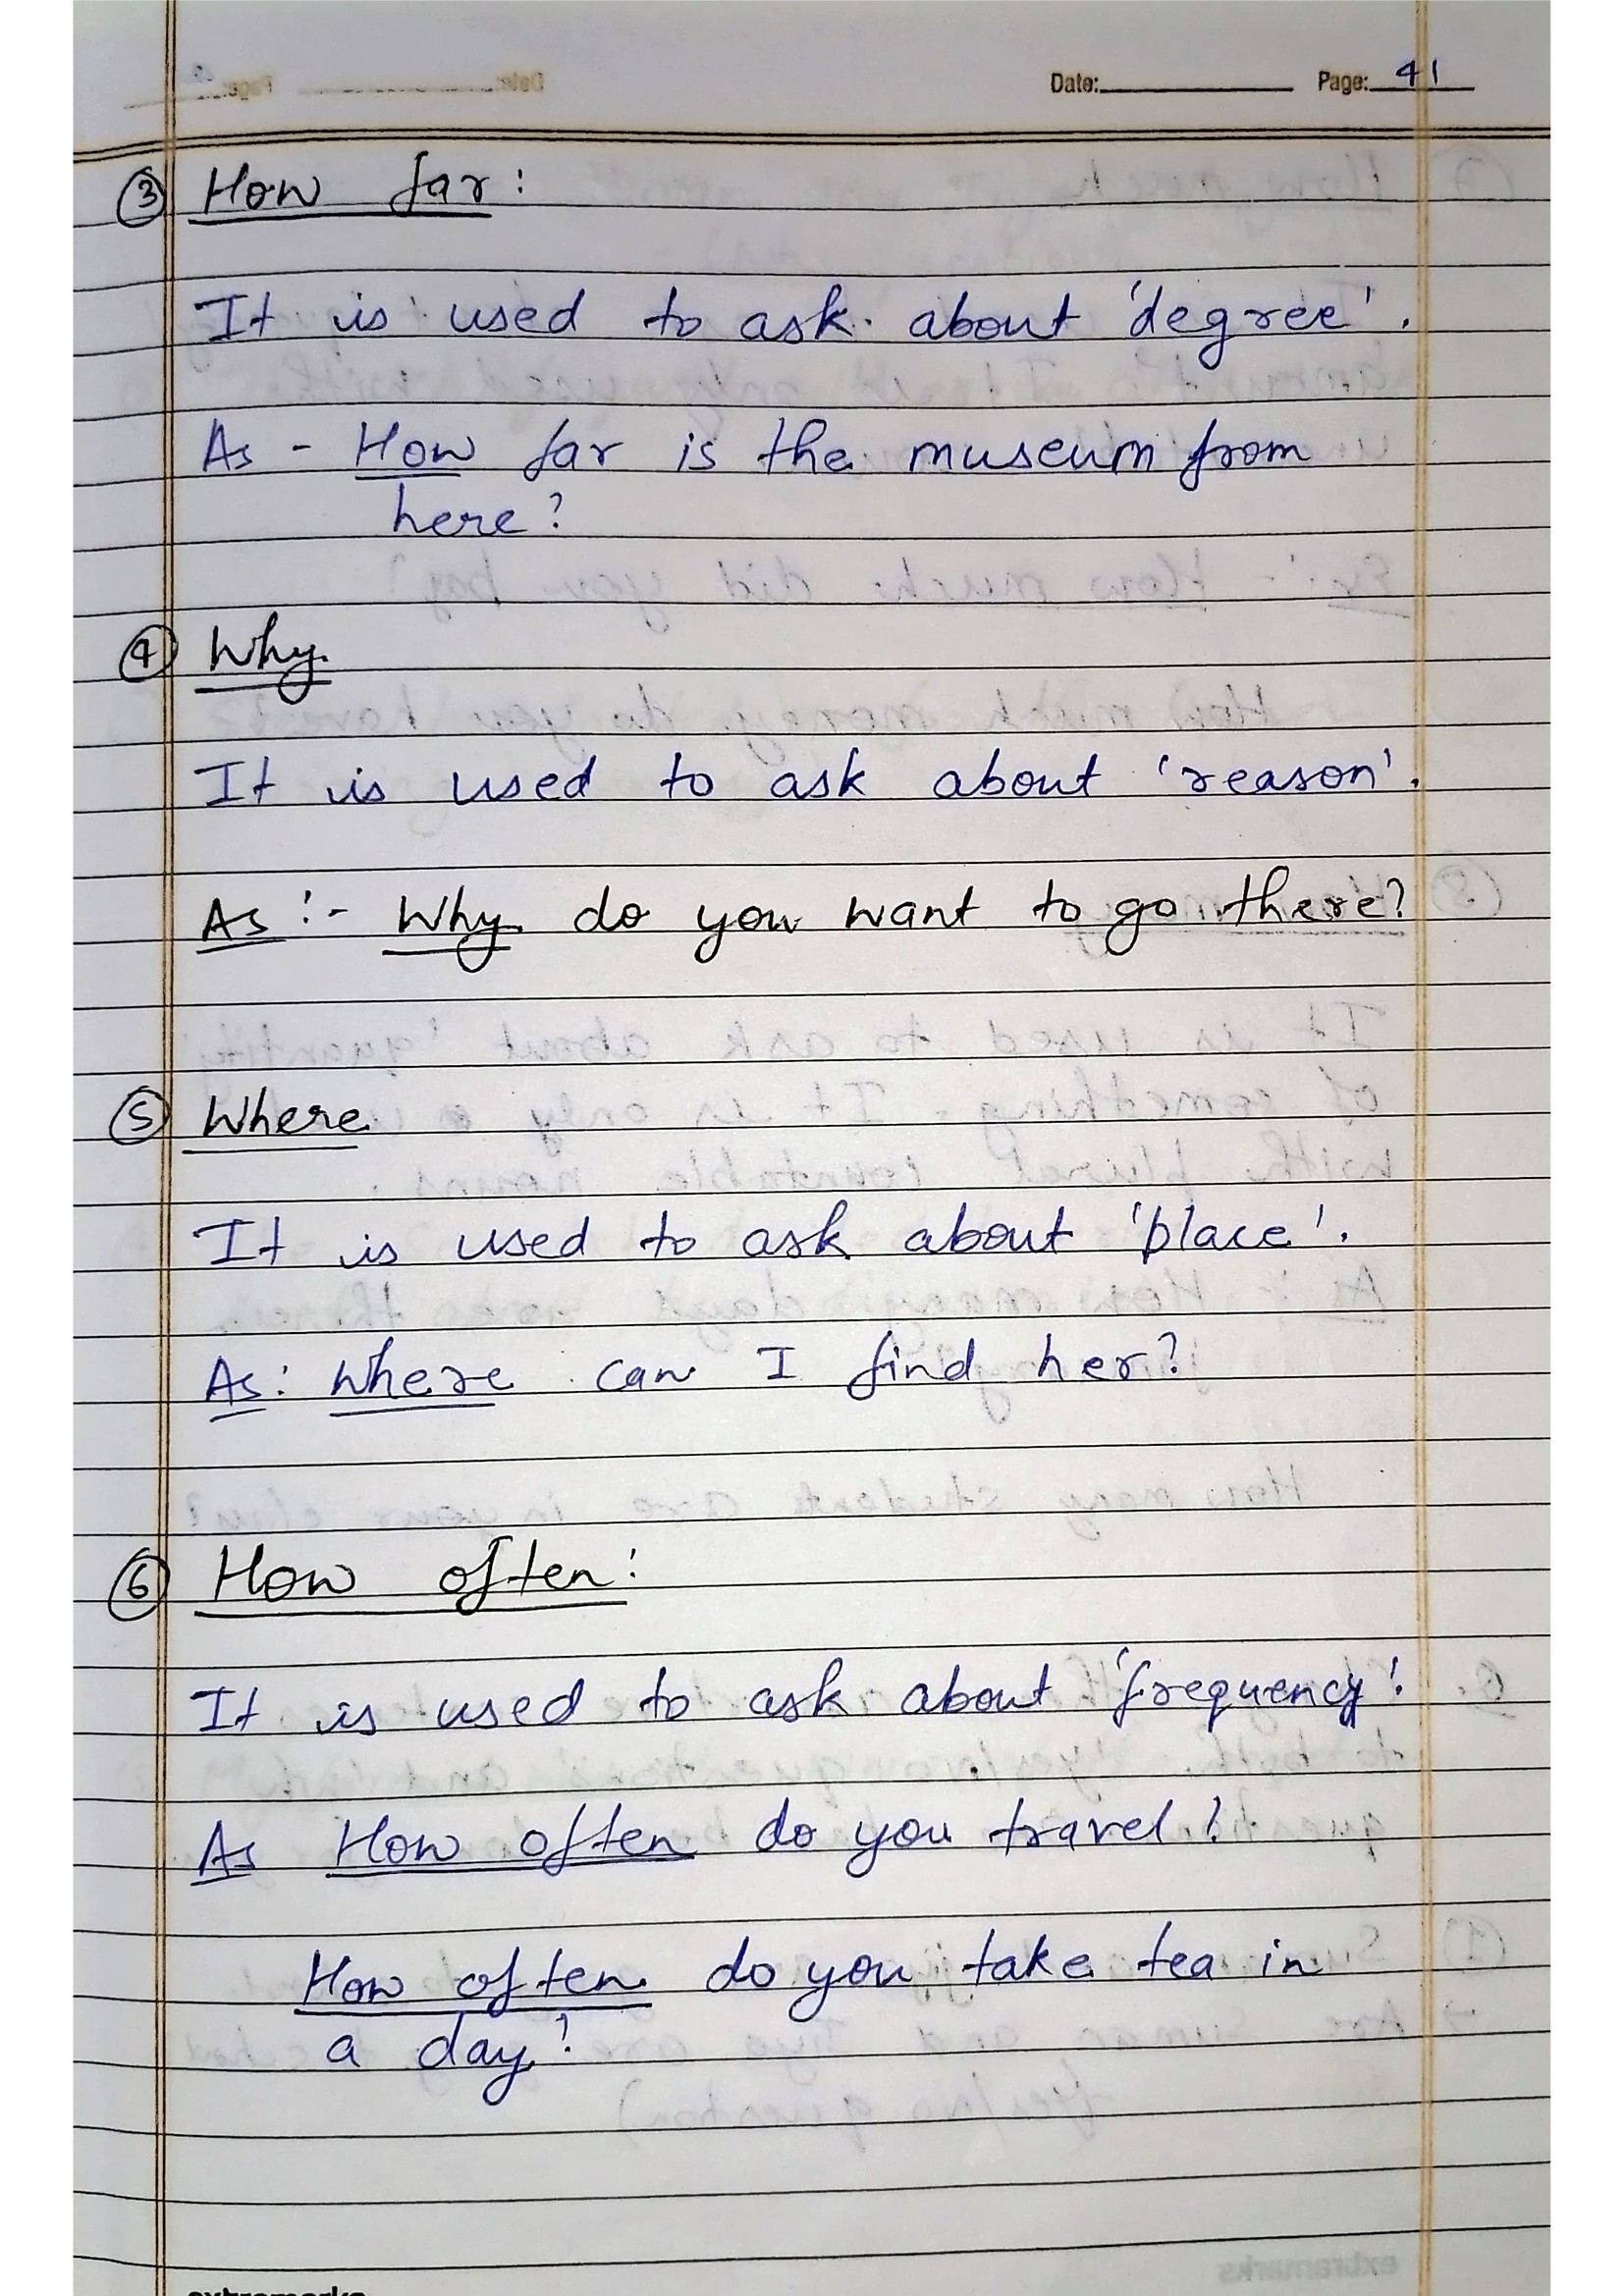 Date: Page: 41
③ How far:
It is used to ask about 'degree'.
As - How far is the museum from
here?
④ Why
It is used to ask about 'reason'.
As :- Why do you want to go there?
⑤ Where
It is used to ask about 'place'.
As: Where can I find her?
⑥ How often:
It is used to ask about 'frequency'.
As How often do you travel?
How often do you take tea in
a day?